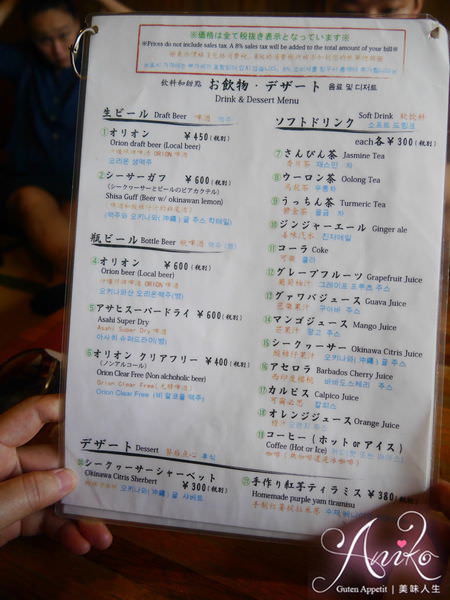 ※価格は全て税抜き表示となっています※
※Prices do not include sales tax. A 8% sales tax will be added to the total amount of your bill※
飲料和甜點 お飲物・デザート 음료 및 디저트
Drink & Dessert Menu
生ビール Draft Beer 啤酒 맥주
①オリオン ¥450(税別)
Orion draft beer (Local beer)
ORION 啤酒
오리온 생맥주
②シーサーガフ ¥600(税別)
(シークヮーサーとビールのビアカクテル)
Shisa Guff (Beer w/ okinawan lemon)
(맥주와 오키나와(沖縄) 귤 주스 칵테일)
瓶ビール Bottle Beer 瓶啤酒 맥주 (병)
④オリオン ¥600(税別)
Orion beer (Local beer)
오키나와산 오리온맥주(병)
⑤アサヒスーパードライ ¥600(税別)
Asahi Super Dry
Asahi Super Dry 啤酒
아사히 슈퍼드라이(병)
⑥オリオン クリアフリー ¥400(税別)
(ノンアルコール)
Orion Clear Free (Non alchoholic beer)
Orion Clear Free (无精啤酒)
Orion Clear Free (비 알코올 맥주)
ソフトドリンク Soft Drink 軟飲料
소프트 드링크
each各¥300(税別)
⑦さんぴん茶 Jasmine Tea
香片茶 재스민 차
⑧ウーロン茶 Oolong Tea
烏龍茶 우롱차
⑨うっちん茶 Turmeric Tea
鬱金茶 울금 차
⑩ジンジャーエール Ginger ale
姜味汽水 진저에일
⑪コーラ Coke
可樂 콜라
⑫グレープフルーツ Grapefruit Juice
葡萄柚汁 그레이프 프루츠 주스
⑬グァワバジュース Guava Juice
芭樂果汁 구아바 주스
⑭マンゴジュース Mango Juice
芒果汁 망고 주스
⑮シークヮーサー Okinawa Citris Juice
酸桔仔果汁 오키나와(沖縄) 귤 주스
⑯アセロラ Barbados Cherry Juice
西印度櫻桃 바베도스체리 주스
⑰カルピス Calpico Juice
可爾必思 칼피스
⑱オレンジジュース Orange Juice
橙汁 오렌지 주스
⑲コーヒー(ホット or アイス)
Coffee (Hot or Ice)
咖啡
デザート Dessert 餐后点心 후식
⑳シークヮーサーシャーベット
Okinawa Citris Sherbert ¥300(税別)
오키나와(沖縄) 귤 샤베트
㉑手作り紅芋ティラミス ¥380(税別)
Homemade purple yam tiramisu
Aniko
Guten Appetit | 美味人生